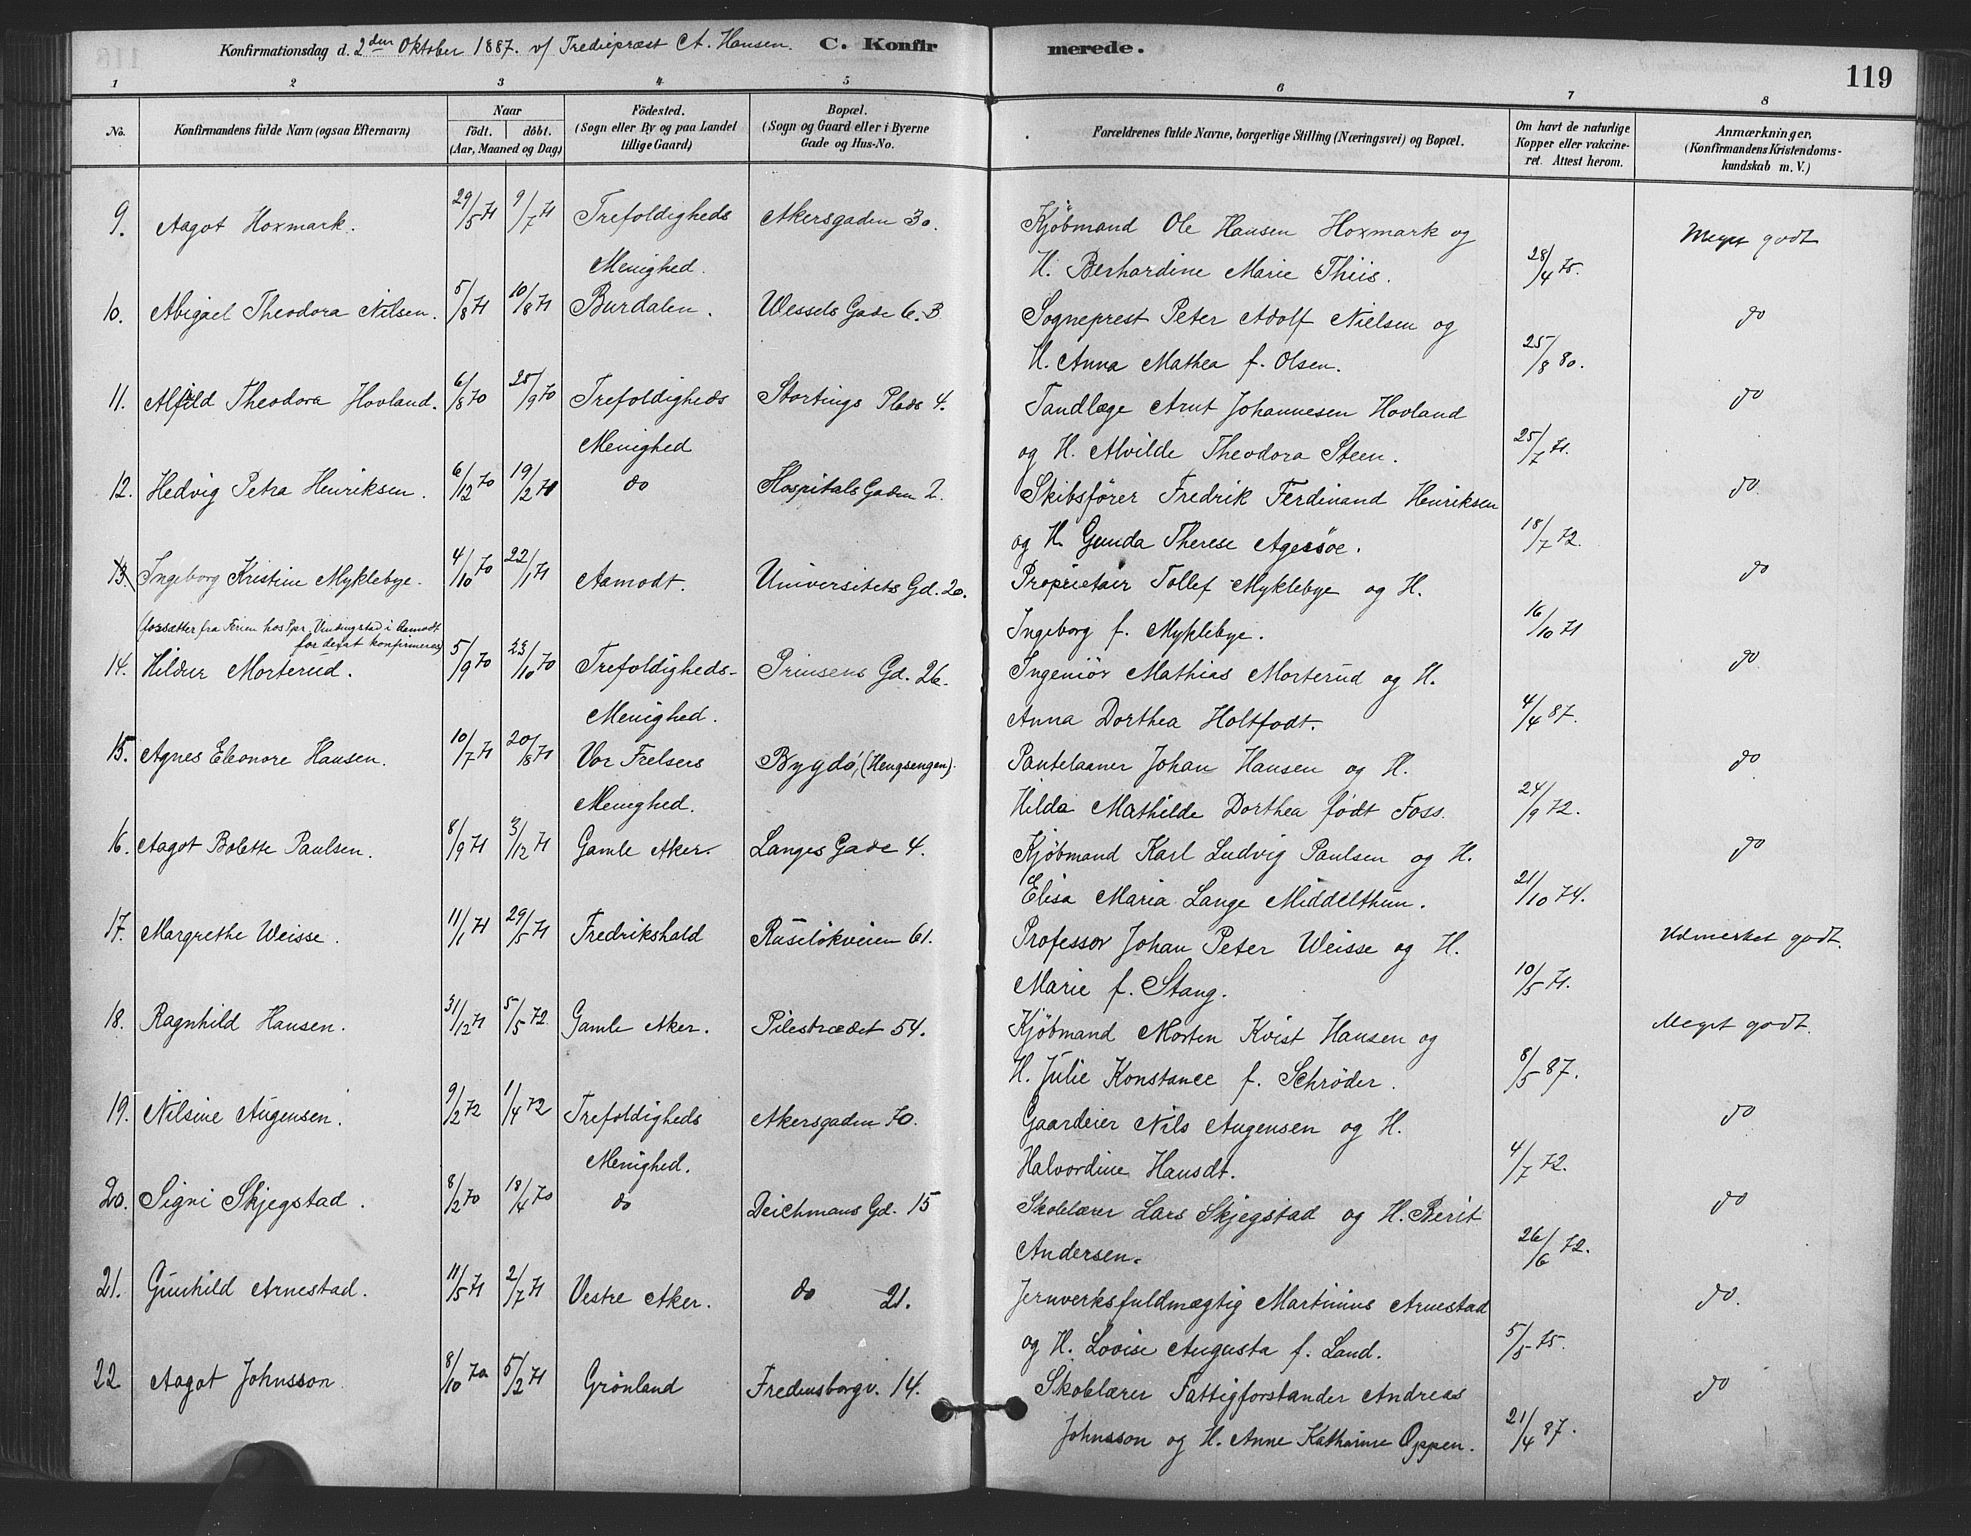 Konfirmationsdag d. 2den Oktober 1887. v/ Trediepræst A. Hansen. C. Konfirmerede. 119
1 2 3 4 5 6 7 8
No. Konfirmandens fulde Navn (ogsaa Efternavn) Naar födt. döbt. (Aar, Maaned og Dag) Födested. (Sogn eller By og paa Landet tillige Gaard) Bopæl. (Sogn og Gaard eller i Byerne Gade og Hus-No. Forældrenes fulde Navne, borgerlige Stilling (Næringsvei) og Bopæl. Om havt de naturlige Kopper eller vakcineret. Attest herom. Anmærkninger, (Konfirmandens Kristendomskundskab m. V.)
9. Aagot Hoxmark. 29/5 71 9/7 71 Trefoldigheds Akersgaden 30. Kjöbmand Ole Hansen Hoxmark og Meget godt
Menighed. H. Berhardine Marie Thiis. 28/4 75.
10. Abigael Theodora Nilsen. 5/8 71 10/8 71 Burdalen. Wessels Gade 6.B Sogneprest Peter Adolf Nielsen og do
H. Anna Mathea f. Olsen. 25/8 80.
11. Alfild Theodora Hovland. 6/8 70 25/9 70 Trefoldigheds Stortings Plads 4. Tandlæge Arnt Johannesen Hovland do
Menighed og H. Alvilde Theodora Steen. 25/7 71.
12. Hedvig Petra Henriksen. 6/12 70 19/2 71 do Hospitals Gaden 2. Skibsförer Fredrik Ferdinand Henriksen do
og H. Gunda Therese Agersöe. 18/7 72.
13. Ingeborg Kristine Myklebye. 4/10 70 22/1 71 Aamodt. Universitets Gd. 20. Proprietær Tollef Myklebye og H. do
(forsætter fra Ferien hos Spr. Vindingstad i Aamodt Ingeborg f. Myklebye. 16/10 71
for derat konfirmeres)
14. Hildur Morterud. 5/9 70 23/10 70 Trefoldigheds- Prinsens Gd. 26. Ingeniör Mathias Morterud og H. do
Menighed. Anna Dorthea Holtfodt. 4/4 87.
15. Agnes Eleonore Hansen. 10/7 71 20/8 71 Vor Frelsers Bygdö, (Hengsengen). Pantelaaner Johan Hansen og H. do
Menighed. Hilda Mathilde Dorthea födt Foss. 24/9 72.
16. Aagot Bolette Paulsen. 8/9 71 3/12 71 Gamle Aker. Langes Gade 4. Kjöbmand Karl Ludvig Paulsen og H. do
Elisa Maria Lange Middelthun. 21/10 74.
17. Margrethe Weisse. 11/1 71 29/5 71 Fredrikshald Ruselökveien 61. Professor Johan Peter Weisse og H. Udmerket godt.
Marie f. Stang. 10/5 71.
18. Ragnhild Hansen. 31/12 71 5/5 72 Gamle Aker. Pilestrædet 54. Kjöbmand Morten Kvist Hansen og Meget godt.
H. Julie Konstance f. Schröder. 8/5 87.
19. Nilsine Augensen. 9/2 72 1/4 72 Trefoldigheds Akersgaden 70. Gaardeier Nils Augensen og H. do
Menighed. Halvordine Hansdt. 4/7 72.
20. Signi Skjegstad. 8/2 70 18/4 70 do Deichmans Gd. 15 Skolelærer Lars Skjegstad og H. Berit do
Andersen. 26/6 72.
21. Gunhild Arnestad. 11/5 71 2/7 71 Vestre Aker. do 21. Jernverksfuldmægtig Martinius Arnestad do.
og H. Lovise Augusta f. Land. 5/5 75.
22 Aagot Johnsson 8/10 70 5/2 71 Grönland Fredensborgv. 14. Skolelærer Fattigforstander Andreas do
Johnsson og H. Anne Katharine Oppen. 21/4 87.